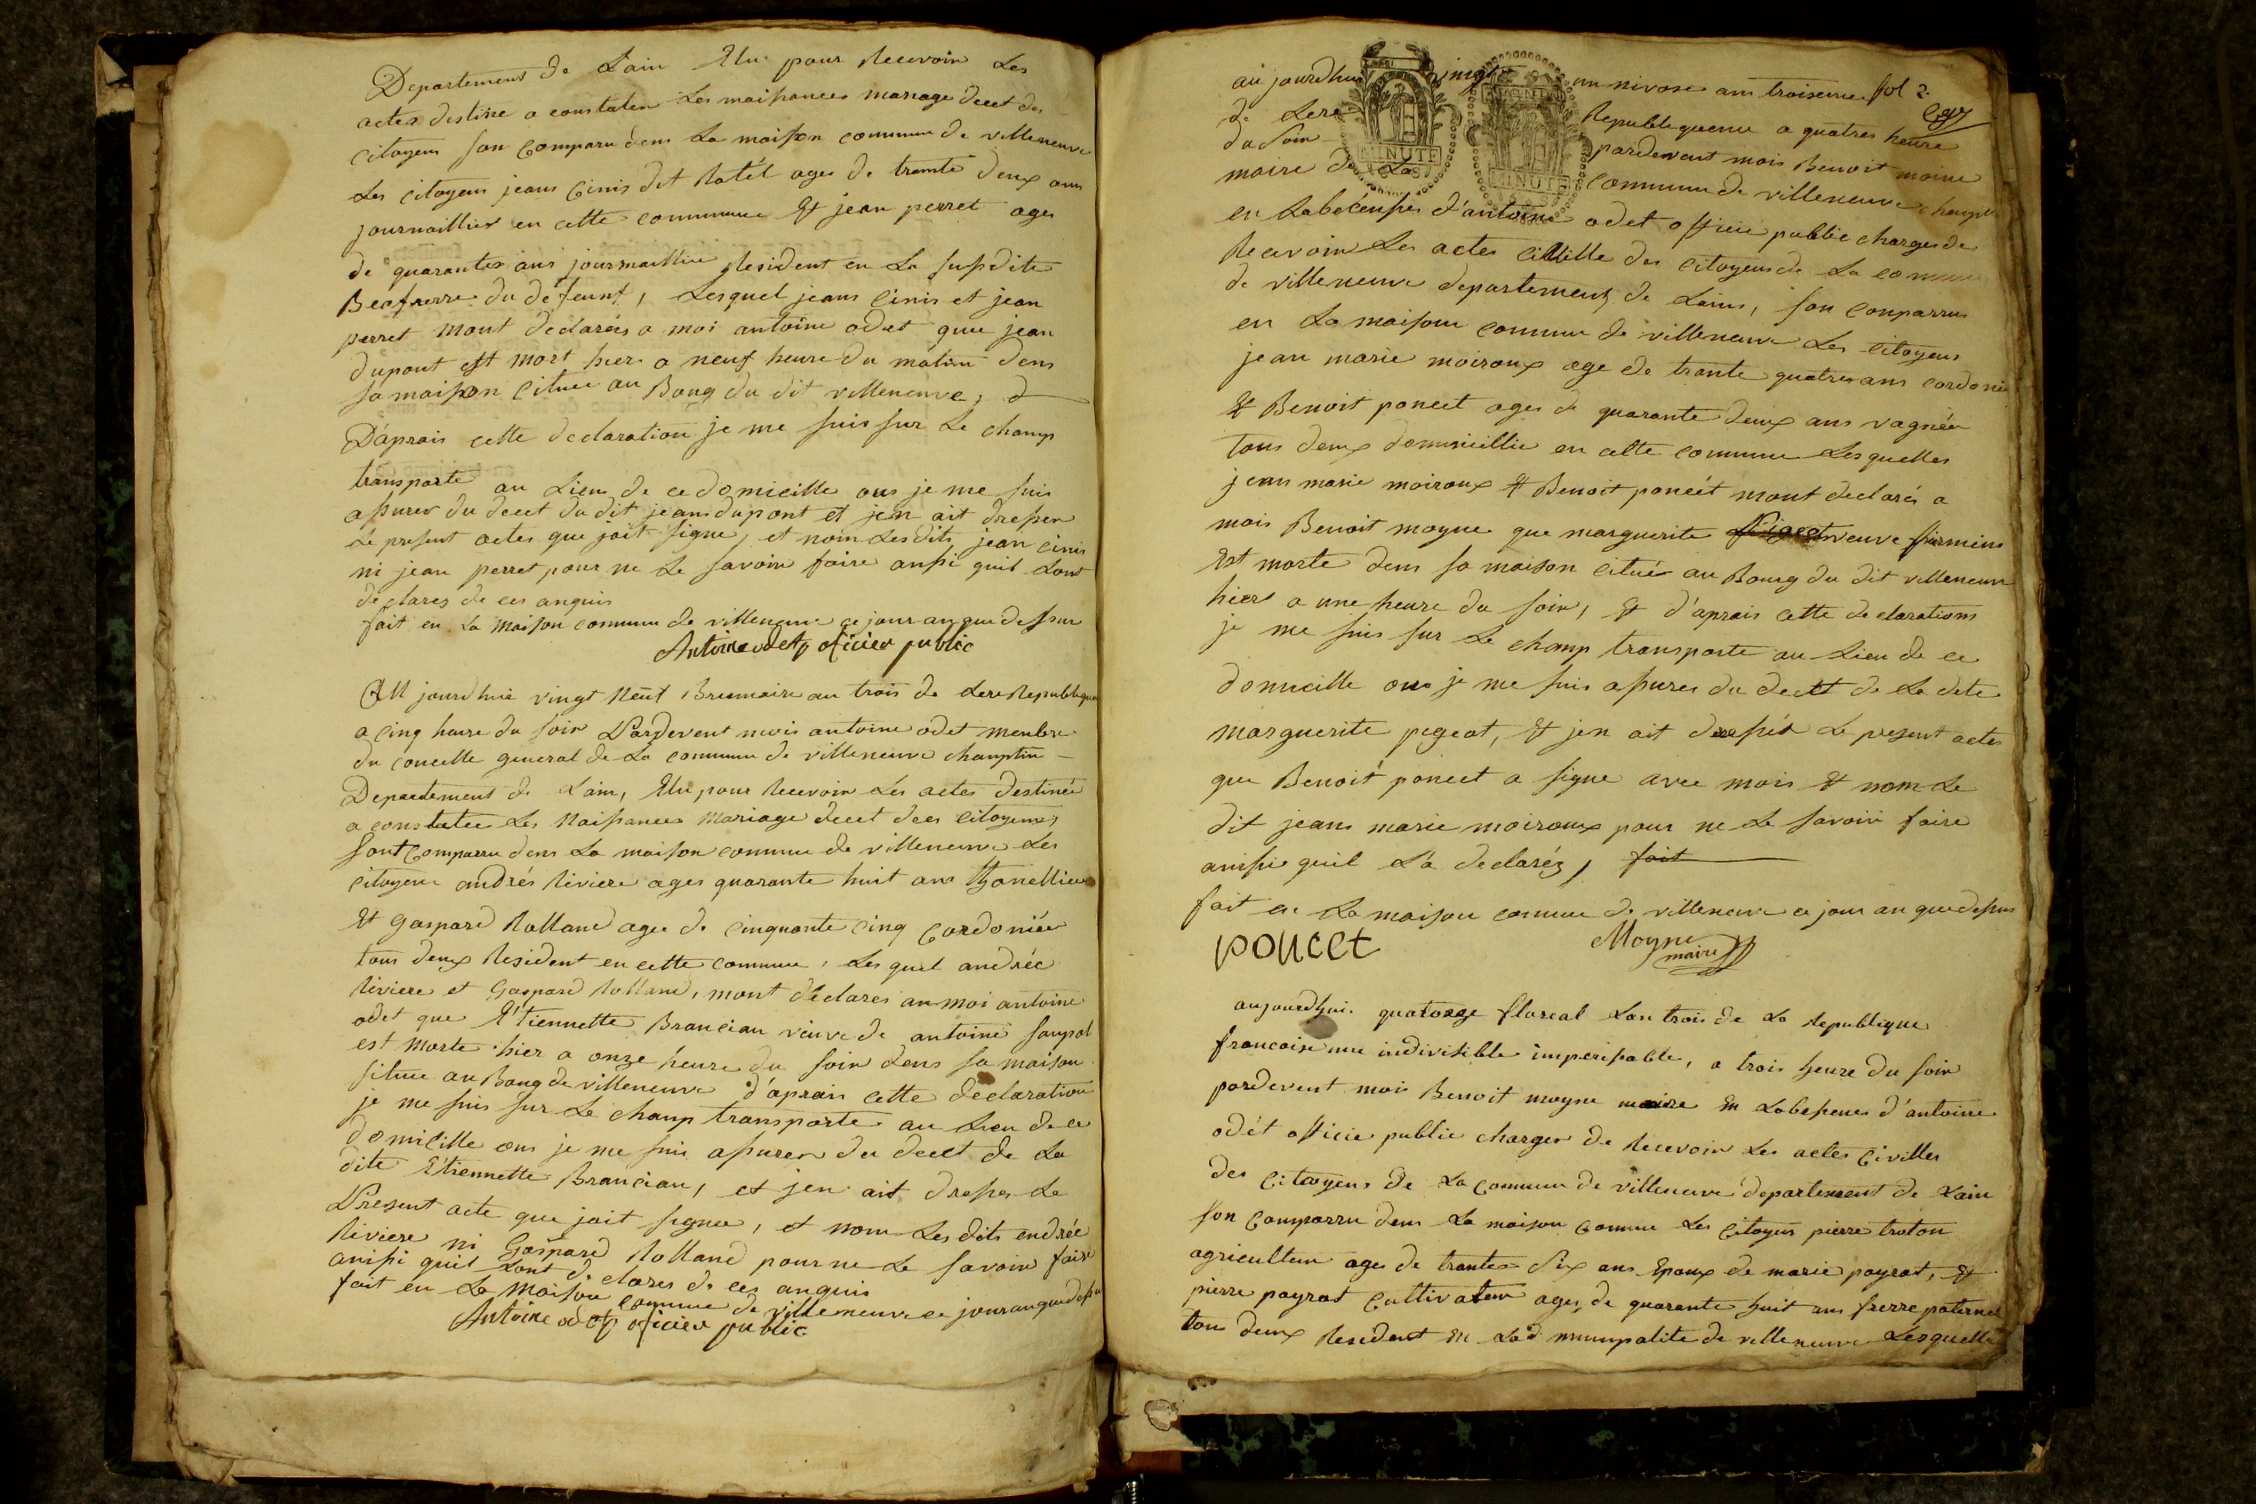 Departement de Lain Elu pour Recevoir Les
actes destine a constater Les naissances mariage decet des
Citoyens son Comparu dens La maison commune de villeneuve
Les citoyens jeans Cinis dit Ratél ages de trante deux ans
journaillier en cette commune Et jean perret ages
de quarantes ans journaillier Resident en La susdite
Beafrerre du défeunt, Lesquel jeans Cinis et jean
perret mont declarés a moi antoine odet que jean
dupont est mort hier a neuf heure du matin dens
sa maison Cituee au Bourg du dit villeneuve, d
D'áprais cette declaration je me suis sur Le champ
transporte au Lieu de ce domicille ous je me suis
assurer du decet du dit jean dupont et jen ait dresser
Le present actes que jait signe, et nom Lesdits jean cinis
ni jean perret pour ne Le savoir faire ansi quil Lont
declarez de ces anquis
fait en La maison commune de villeneuve ce jour an que dessur
Antoine odet officier public
AU jourdhuis vingt Neuf Brumaire an trois de Lere Republiquen
a Cinq heure du soir Pardevent mois antoine odet menbre
du concelle general de La commune de villeneuve champtin
Departement de Lain, Elu pour Recevoir Lés actes destinée
a constatee Les Naissances Mariage decet dees Citoyens
sont Comparru dens La maison commune de villeneuve Les
citoyens andrés Riviere ages quarante huit ans thonellier
Et Gaspard Rolland agee de Cinquante Cinq Cordoniér
tous deux Resident en cette commune, Les quel andrée
Riviere et Gaspard Rolland, mont declares au moi antoine
odet que E'tiennette Brancian veuve de antoine sanpol
est morte hier a onze heure du soir dens sa maison
situee au Boug de villeneuve d'áprais cette declaration
je me suis sur Le champ transporte au Lieu de ce
domicille ous je me suis assurer du decet de La
dite E'tiennette Brancian, et jen ait dresser Le
Present acte que jait signee, et nom Les dits endrée
Riviere ni Gaspard Rolland pour ne Le savoir faire
anissi quil Lont declares de ces anquis
fait en La Maison commune de villeneuve ce jour an que dessu
Antoine odet officier public
au jourdhui vingt un nivose ans troisieme fol 2.
de Lere Republiquenne a quatres heure
du soir pardevent mois Benoit moine
maire de La commune de villeneuve champt
en Labscenses d'antoine odet officie public charges de
Recevoir Les actes civille des citoyens de La commune
de villeneuve departement de Lains, son conparrus
en La maisone commune de villeneuve Les citoyens
jean marie moiroux age de trante quatres ans cordonie
Et Benoit poncet ages de quarante deux ans vagnéer
tous deux domicillie en cette commune Lesquelles
jean marie moiroux Et Benoit poncét mont declarés a
mois Benoit moyne que marguerite veuve firmins
Est morte dens sa maison cituée au Bourg du dit villeneuve
hier a une heure du soir, Et d'aprais cette declarations
je me suis sur Le champ transporte au Lieu de ce
domicille ous je me suis assures du decett de La dite
marguerite pegeot, Et jen ait dressér Le present actes
que Benoit poncet a signe avec mois Et nom Le
dit jeans marie moiroux pour ne Le savoir faire
anissi quil La declaréz, fait
fait en La maison commune de villeneuve ce jour an que dessus
poncet Moyne
maire
aujourdhui quatorze floreal Lan trois de La Republique
francaise une indivisible imperissable, a trois heure du soir
pardevent mois Benoit moyne maire En Labssences d'antoine
odét officie public charger de Recevoir Les actes Civilles
des Citoyens de La Commune de villeneuve departement de Lain
son Comparru dens La maison Commune Les Citoyens pierre traton
agriculteur ages de trantes six ans Epoux de marie payrat, Et
pierre payrat Cultivateur ages de quarante huit ans frerre paternel
tous deux Resident En Lad municipalite de villeneuve Lesquelle